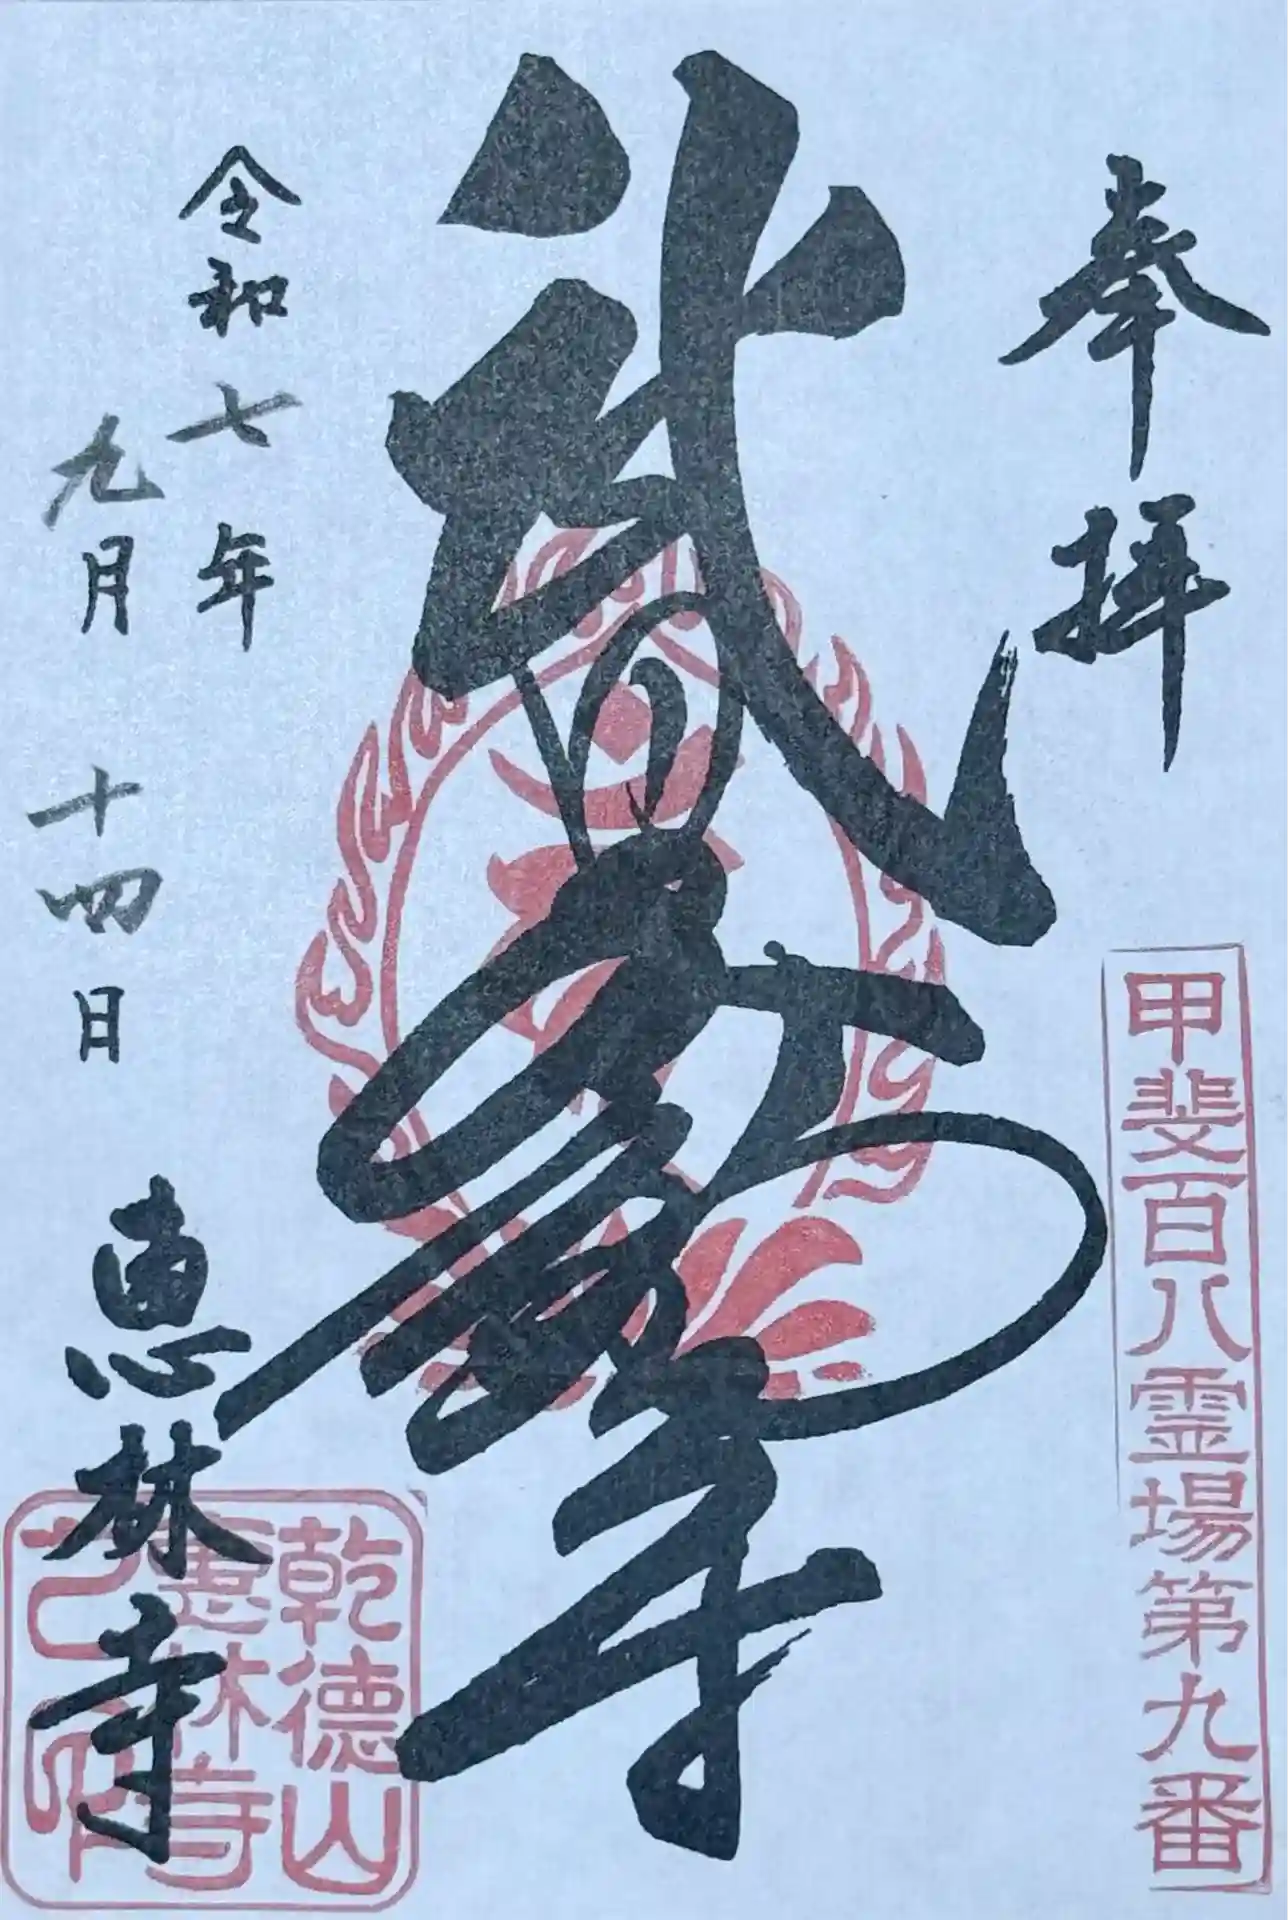 奉拝
甲斐百八霊場第九番
武田不動尊
令和七年
九月十四日
恵林寺
乾德山